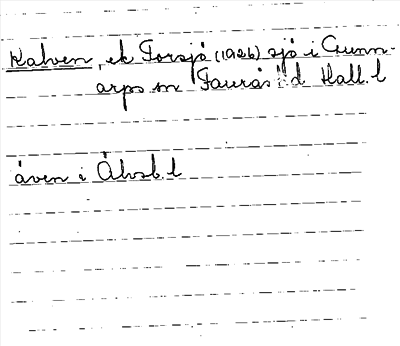 Kalven, ek Torsjö (1926) sjö i Gunn-
arps sn Faurås hd Hall. l
även i Älvsb. l